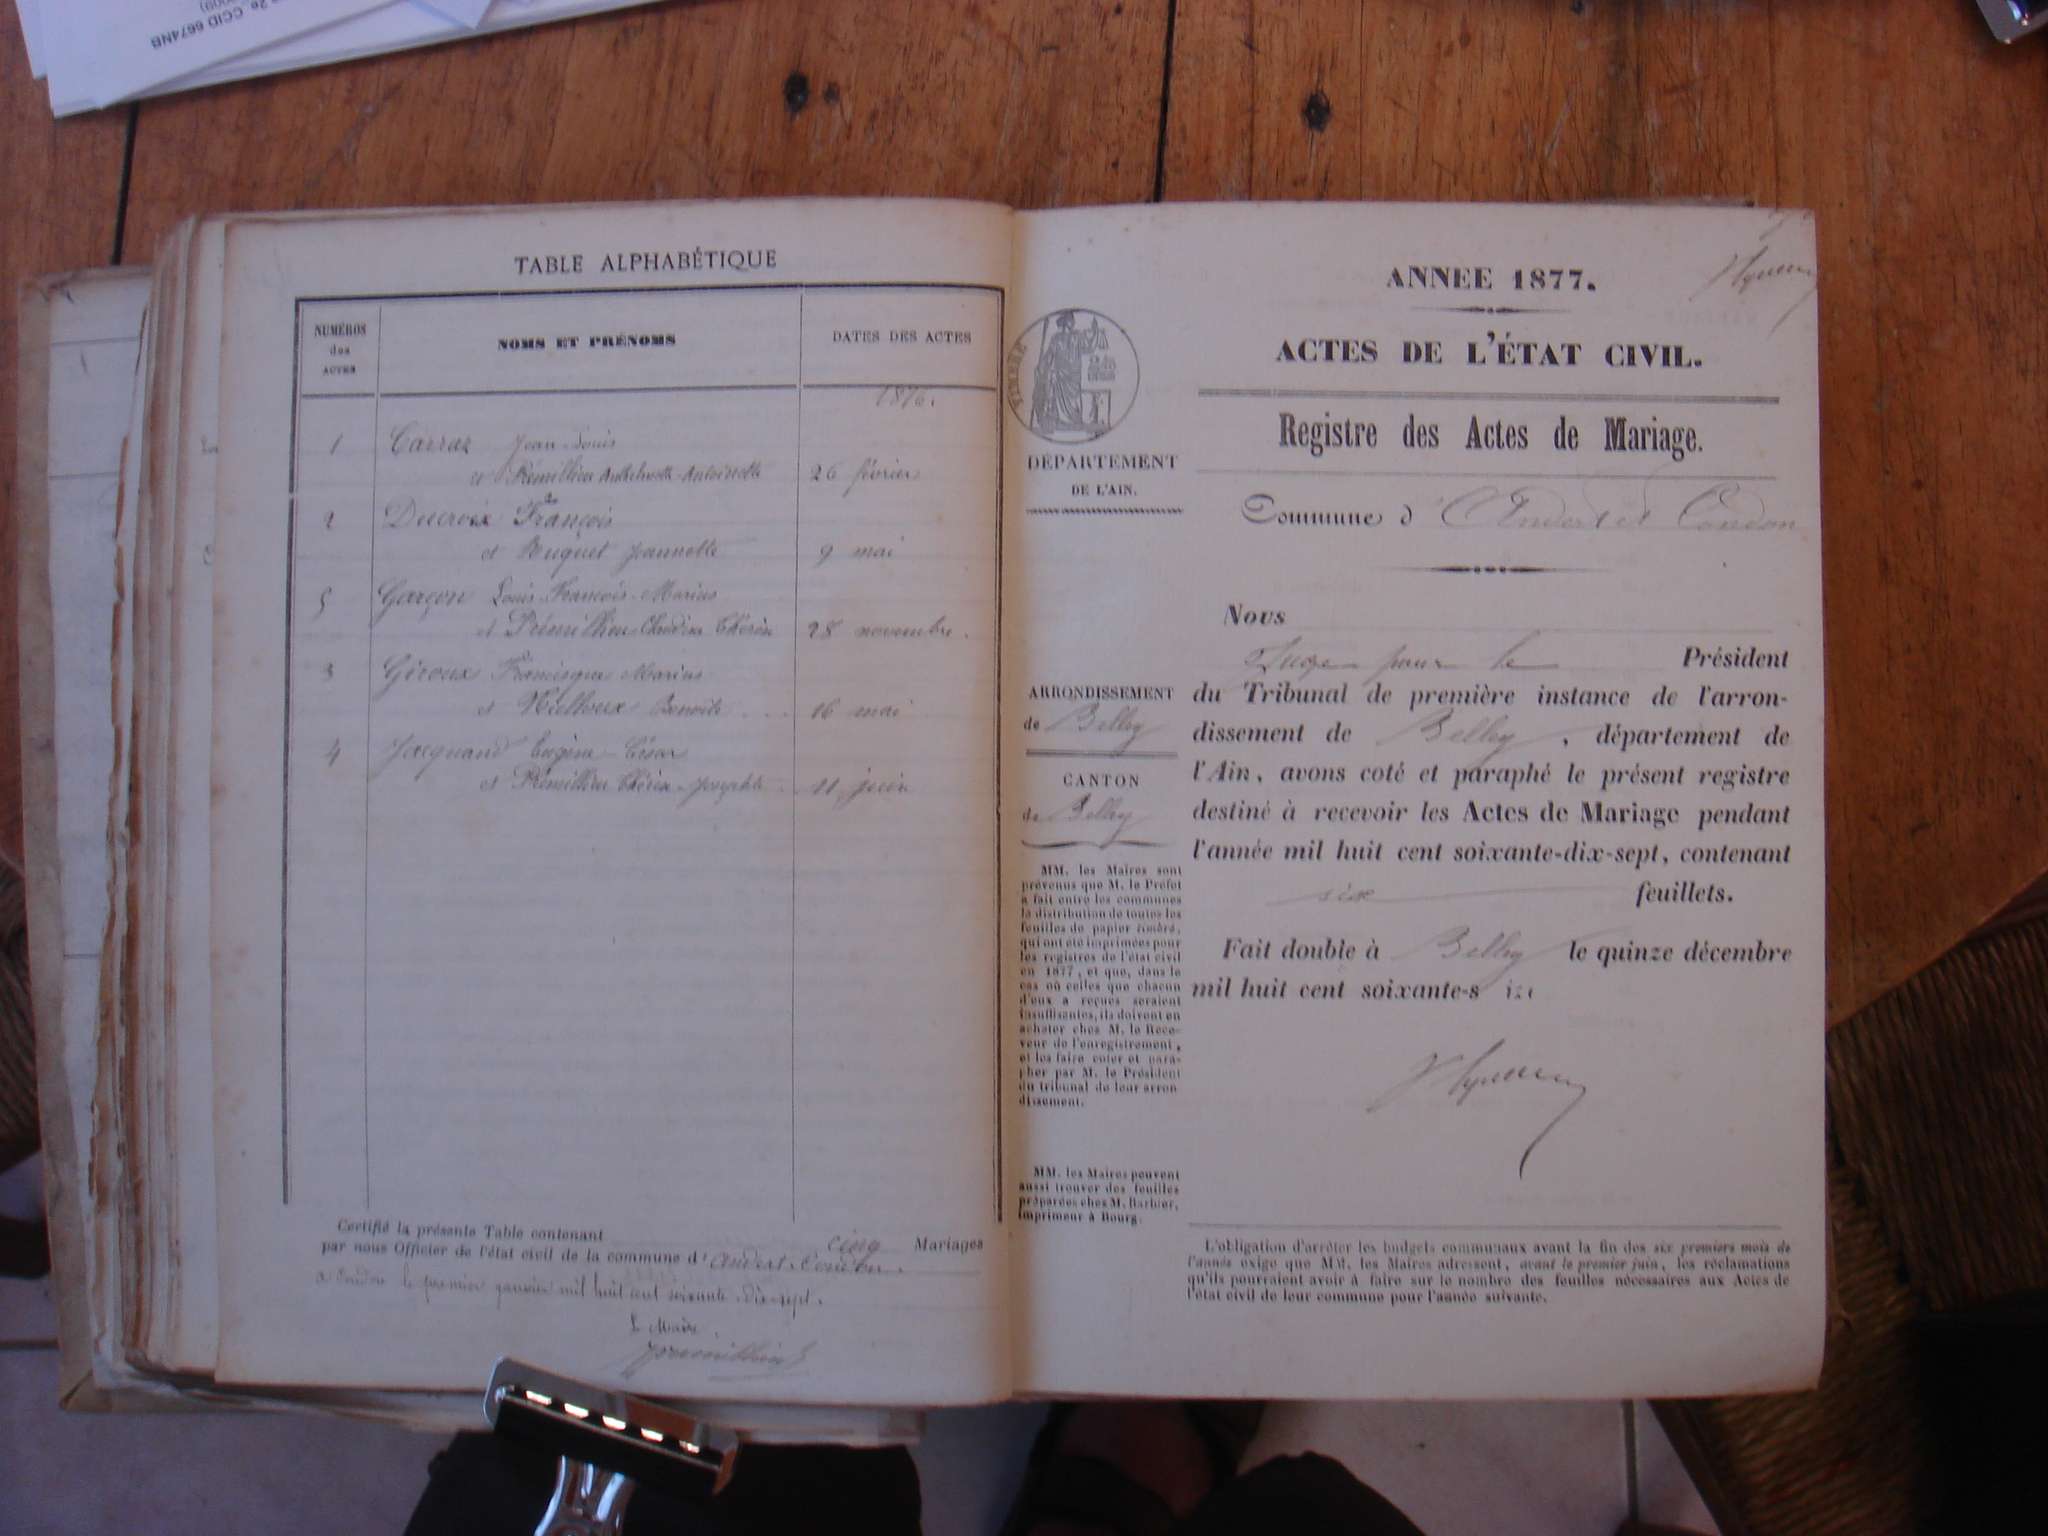 2e, CCID 6674NB
TABLE ALPHABÉTIQUE
NUMÉROS
des
ACTES
NOMS ET PRÉNOMS
DATES DES ACTES
1876.
1 Carraz Jean-Louis
et Rémillieu Anthelmette-Antoinette 26 février
2 Ducroix François
et Buguet Jeannette 9 mai
5 Garçon Louis-François-Marius
et Rémillieu Claudine 28 novembre.
3 Giroux Francisque Marius
et Benoite 16 mai
4 Jacquand Eugène-César
et Rémillieu Josephte 11 juin
Certifié la présente Table contenant cinq Mariages
par nous Officier de l'état civil de la commune d'Andert-Condon.
a Condon le premier janvier mil huit cent soixante-dix-sept.
Le Maire
ANNEE 1877.
ACTES DE L'ÉTAT CIVIL.
Registre des Actes de Mariage.
Commune d'Andert et Condon
TIMBRE
DÉPARTEMENT
DE L'AIN.
ARRONDISSEMENT
de Belley
CANTON
de Belley
MM. les Maires sont
prévenus que M. le Préfet
a fait entre les communes
la distribution de toutes les
feuilles de papier timbré,
qui ont été imprimées pour
les registres de l'état civil
en 1877, et que, dans le
cas où celles que chacun
d'eux a reçues seraient
insuffisantes, ils doivent en
acheter chez M. le Rece-
veur de l'enregistrement,
et les faire coter et para-
pher par M. le Président
du tribunal de leur arron
dissement.
MM. les Maires peuvent
aussi trouver des feuilles
préparées chez M. Barbier,
imprimeur à Bourg.
Nous
Juge pour le Président
du Tribunal de première instance de l'arron-
dissement de Belley, département de
l'Ain, avons coté et paraphé le présent registre
destiné à recevoir les Actes de Mariage pendant
l'année mil huit cent soixante-dix-sept, contenant
six feuillets.
Fait double à Belley le quinze décembre
mil huit cent soixante-s ize
L'obligation d'arrêter les budgets communaux avant la fin des six premiers mois de
l'année exige que MM. les Maires adressent, avant le premier juin, les réclamations
qu'ils pourraient avoir à faire sur le nombre des feuilles nécessaires aux Actes de
l'état civil de leur commune pour l'année suivante.